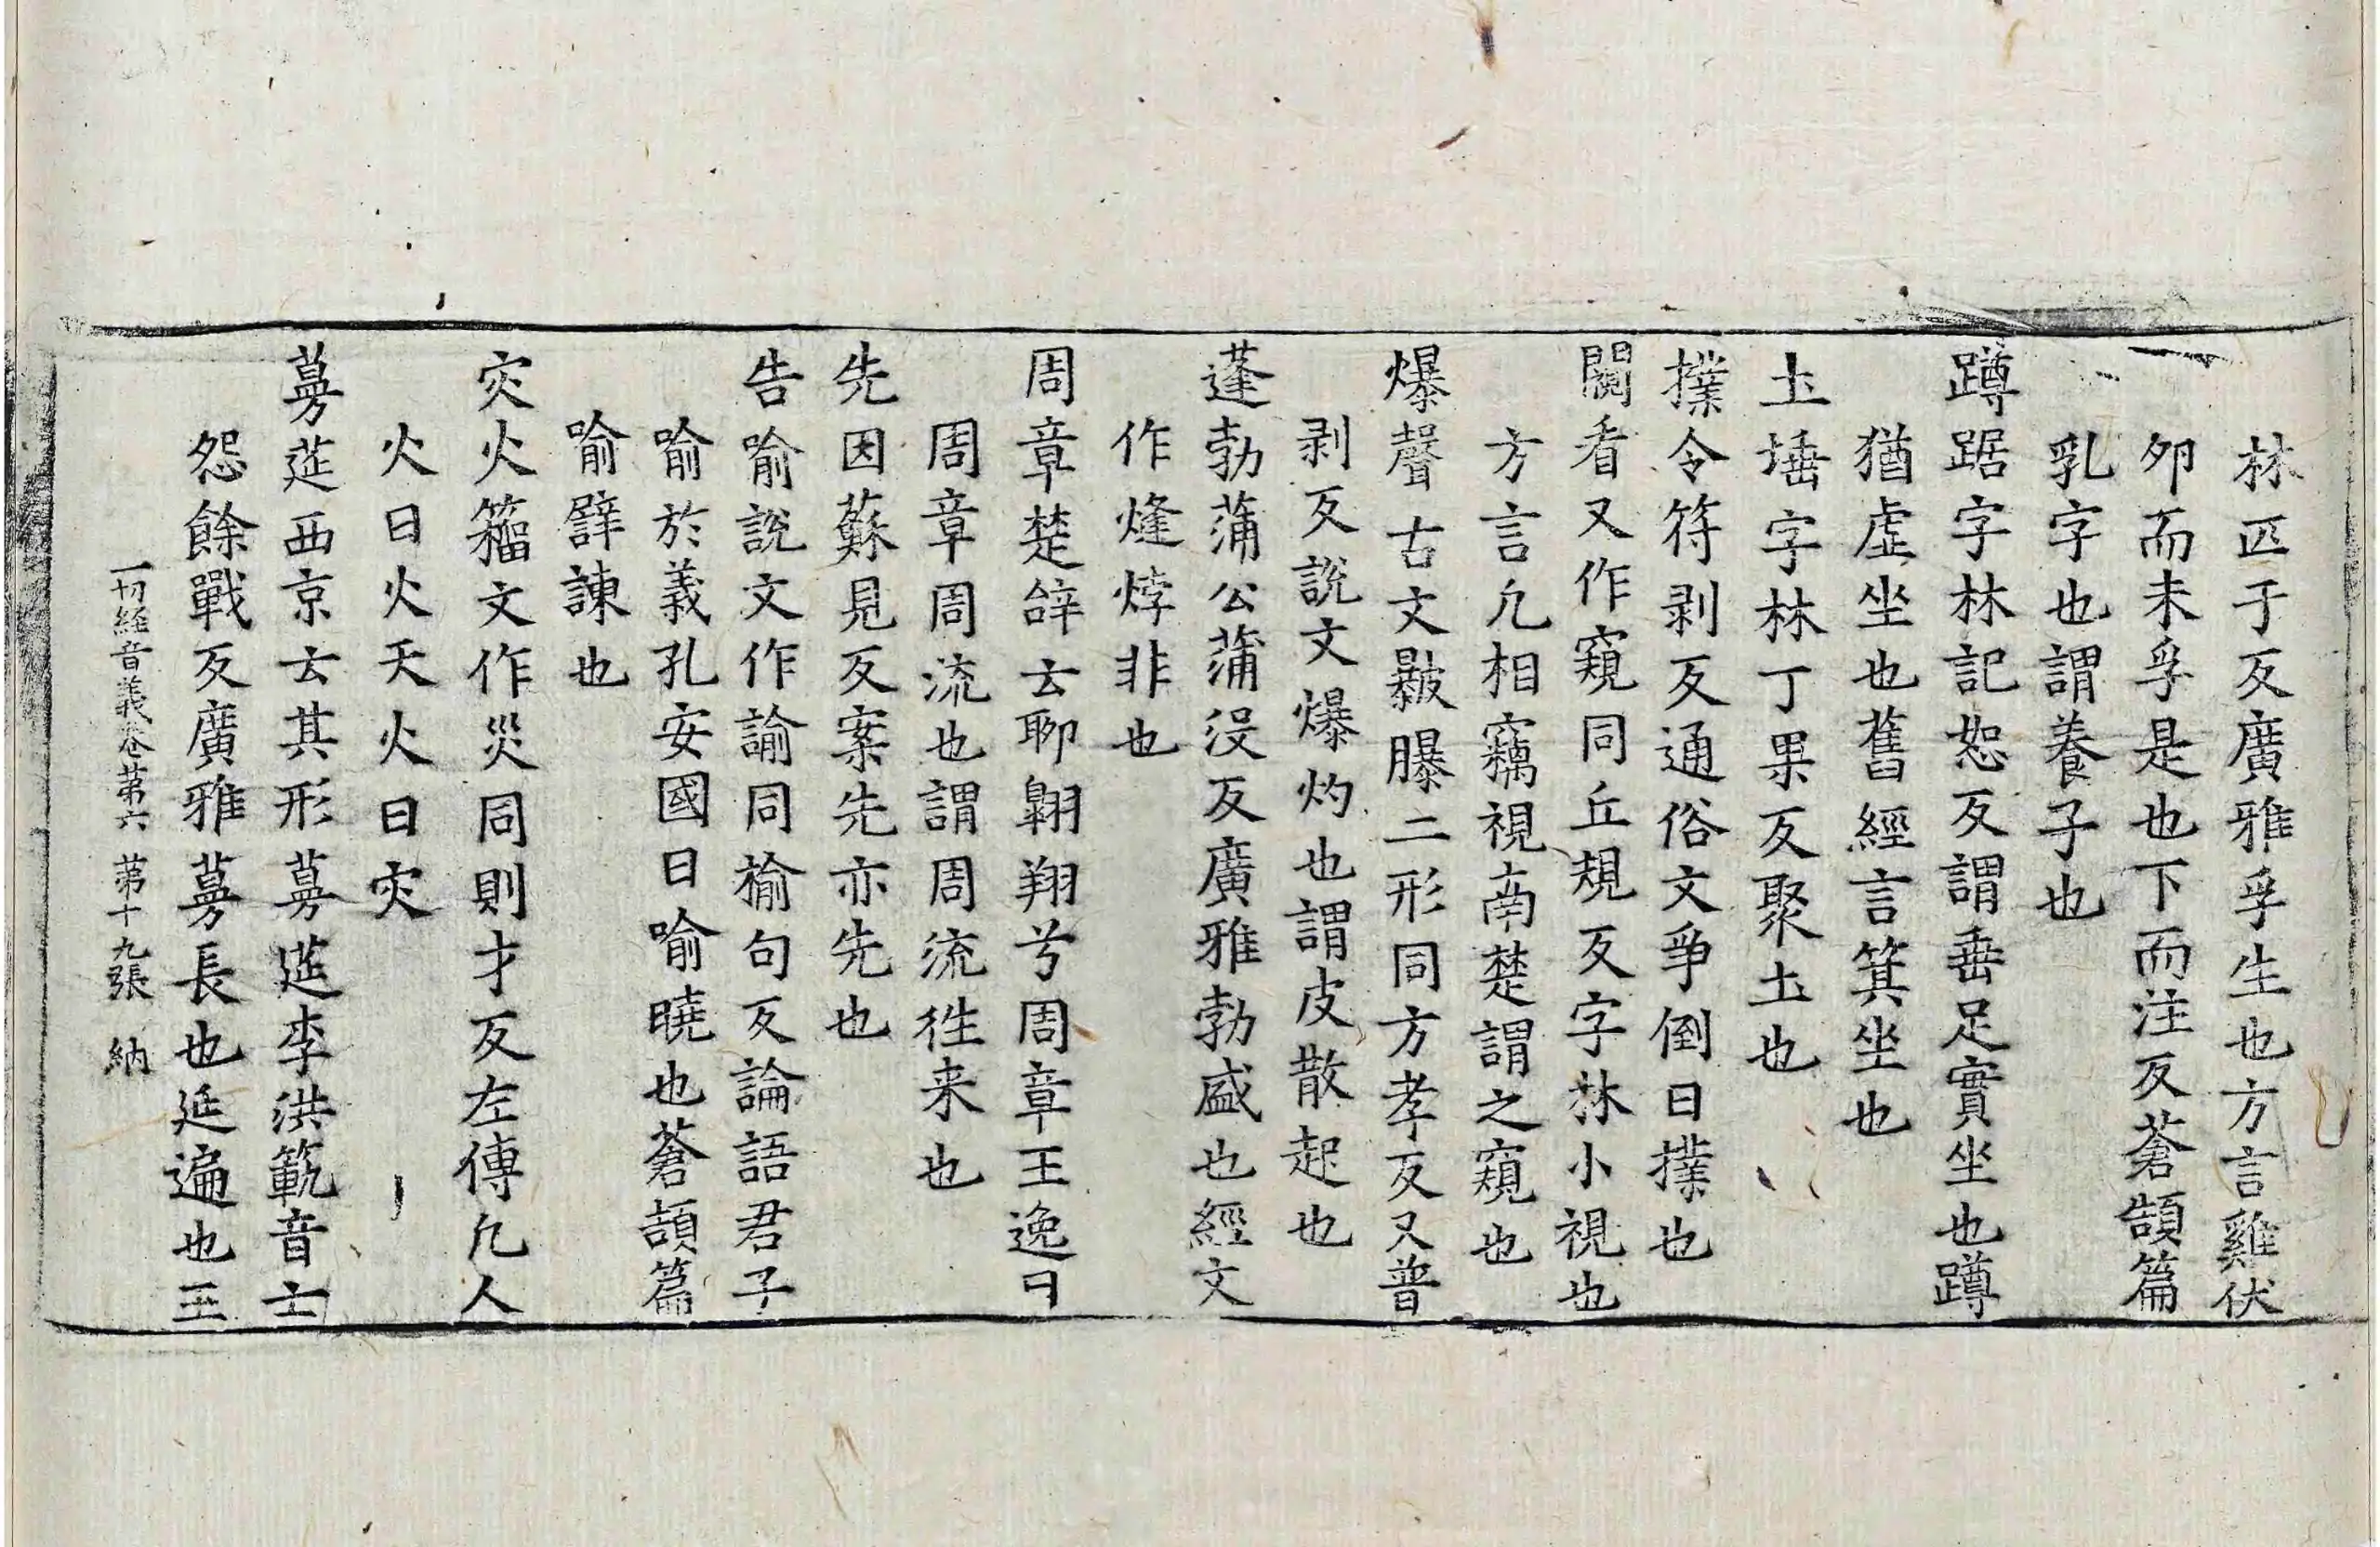 林匹于反廣雅孚生也方言雞伏
夘而未孚是也下而注反蒼頡篇
乳字也謂養子也
蹲踞字林記恕反謂垂足實坐也蹲
猶虛坐也舊經言箕坐也
土埵字林丁果反聚土也
撲令符剥反通俗文爭倒曰撲也
闚看又作窺同丘規反字林小視也
方言凢相竊視南楚謂之窺也
爆聲古文㿺曝二形同方孝反又普
剥反說文爆灼也謂皮散起也
蓬勃蒲公蒲沒反廣雅勃盛也經文
作熢㶿非也
周章楚辝云聊翱翔兮周章王逸曰
周章周流也謂周流徃来也
先因蘇見反案先亦先也
告喻說文作諭同榆句反論語君子
喻於義孔安國曰喻曉也蒼頡篇
喻譬諫也
灾火籀文作災同則才反左傳凢人
火曰火天火曰灾
蔓莚西京云其形蔓莚李洪範音士
怨餘戰反廣雅蔓長也延遍也王
一切經音義卷第六 第十九張 納